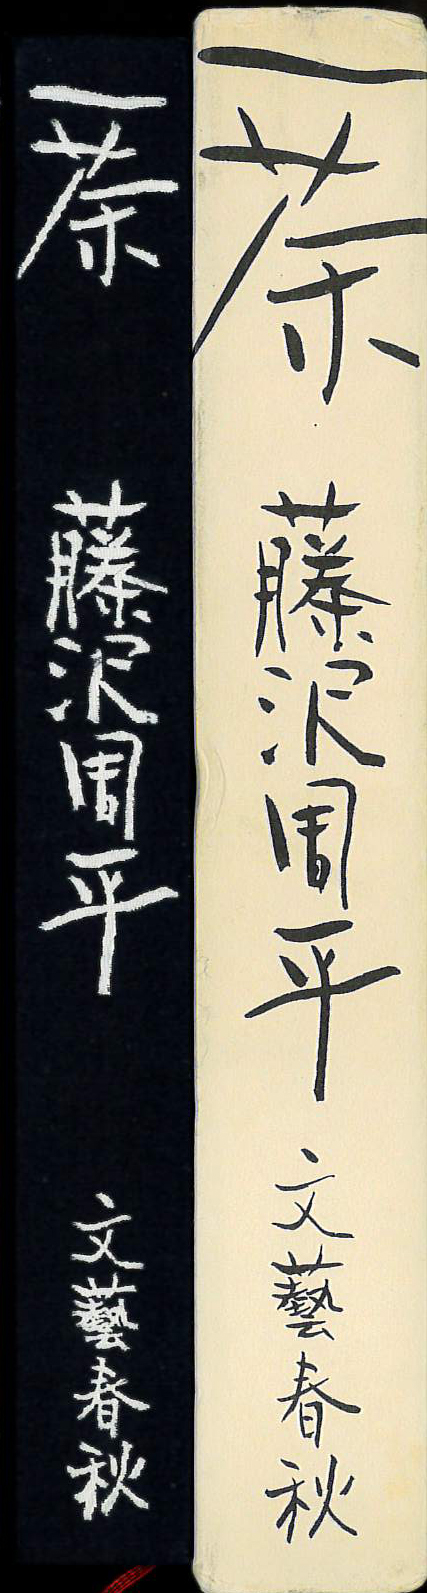 一茶
藤沢周平
文藝春秋
一茶
藤沢周平
文藝春秋